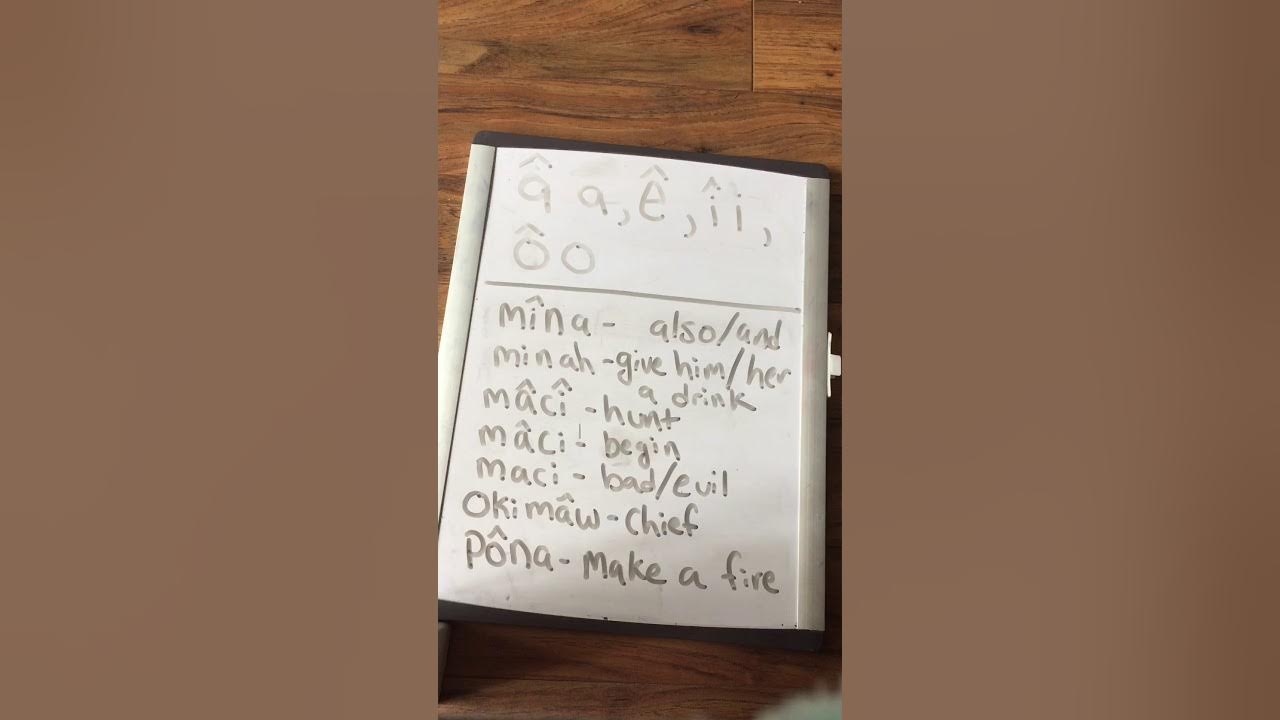 â a, ê, î i,
ô o
mîna - also/and
minah - give him/her
a drink
mâcî - hunt
mâci - begin
maci - bad/evil
Okimâw - Chief
Pôna - Make a fire